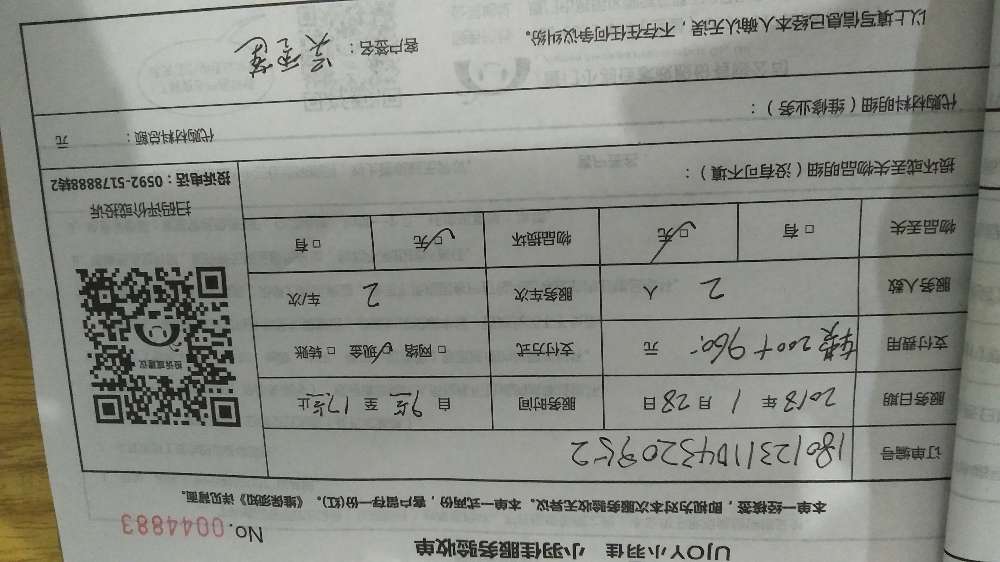 UJOY小羽佳 小羽佳服务验收单
No. 0044883
本单一经核签，即视为对本次服务验收无异议。本单一式两份，客户留存一份(红)。《维保须知》详见背面。
订单编号 180123110432 0952
服务日期 2018 年 1 月 28 日 服务时间 自 9点 至 17点 止
支付费用 200+960 元 支付方式 □ 网络 □ 现金 □ 转账
服务人数 2 人 服务车次 2 车/次
物品丢失 □ 有 □ 无 物品损坏 □ 无 □ 有
投诉或建议
扫码评价或投诉
投诉电话：0592-5178888转2
损坏或丢失物品明细（没有可不填）：
代购材料明细（维修业务）：
代购材料总额： 元
以上填写信息已经本人确认无误，不存在任何争议纠纷。
客户签名：